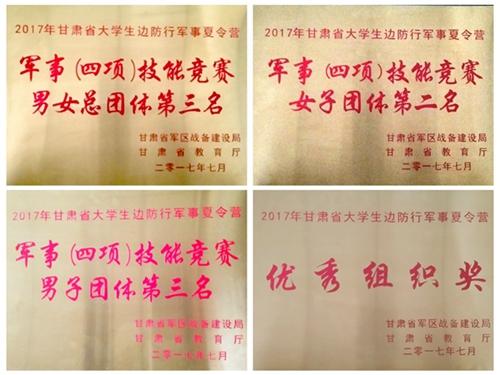 2017年甘肃省大学生边防行军事夏令营
军事(四项)技能竞赛
男女总团体第三名
甘肃省军区战备建设局
甘肃省教育厅
二〇一七年七月
2017年甘肃省大学生边防行军事夏令营
军事(四项)技能竞赛
女子团体第二名
甘肃省军区战备建设局
甘肃省教育厅
二〇一七年七月
2017年甘肃省大学生边防行军事夏令营
军事(四项)技能竞赛
男子团体第三名
甘肃省军区战备建设局
甘肃省教育厅
二〇一七年七月
2017年甘肃省大学生边防行军事夏令营
优秀组织奖
甘肃省军区战备建设局
甘肃省教育厅
二〇一七年七月